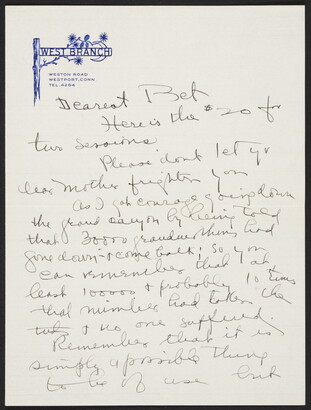 WEST BRANCH
WESTON ROAD
WESTPORT, CONN.
TEL. 4264
Dearest Bet
Here is the $20 for
two sessions.
Please dont let yr
dear Mother frighten you
As I got courage going down
the grand canyon by being told
that 30000 grandmothers had
gone down & come back, so you
can remember that at
least 100000 & probably 10 times
that number had taken the
& no one suffered.
Remember that it is
simply a possible thing
to be of use but